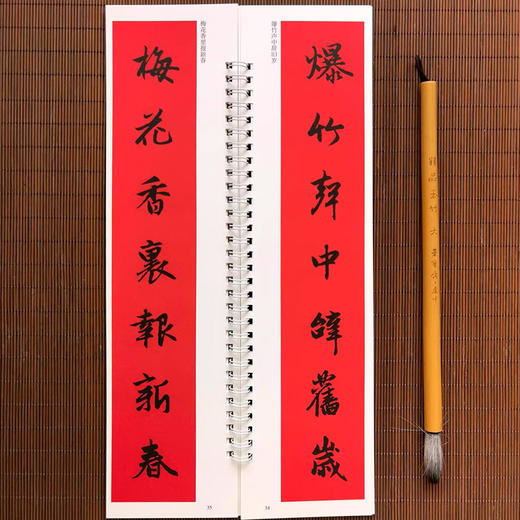 爆竹声中辞旧岁
爆竹聲中辭舊歲
34
梅花香里报新春
梅花香裏報新春
35